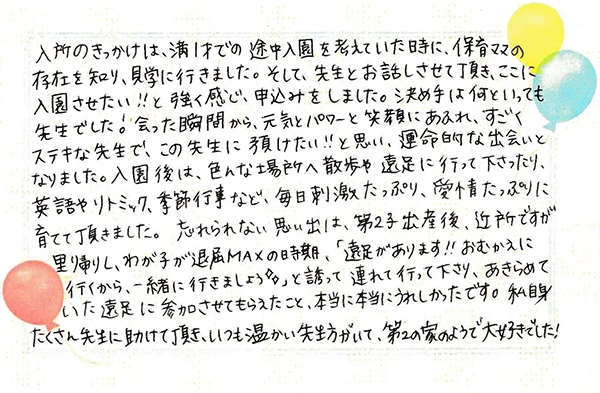 入所のきっかけは、満1才での途中入園を考えていた時に、保育ママの
存在を知り、見学に行きました。そして、先生とお話しさせて頂き、ここに
入園させたい!!と強く感じ、申込みをしました。決め手は何といっても
先生でした!会った瞬間から、元気とパワーと笑顔にあふれ、すごく
ステキな先生で、この先生に預けたい!!と思い、運命的な出会いと
なりました。入園後は、色んな場所へお散歩や遠足に行って下さったり、
英語やリトミック、季節行事など、毎日刺激たっぷり、愛情たっぷりに
育てて頂きました。忘れられない思い出は、第2子出産後、近所ですが
里帰りし、わが子が退屈MAXの時期、「遠足があります!!おむかえに
行くから、一緒に行きましょう」と誘って連れて行って下さり、あきらめて
いた遠足に参加させてもらえたこと、本当に本当にうれしかったです。私自身
たくさん先生に助けて頂き、いつも温かい先生方がいて、第2の家のようで大好きでした!